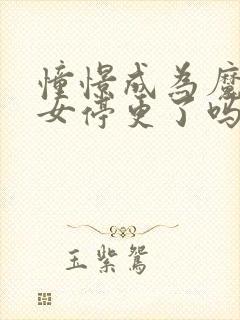 憧憬成为魔
女停更了吗
玉紫鸳